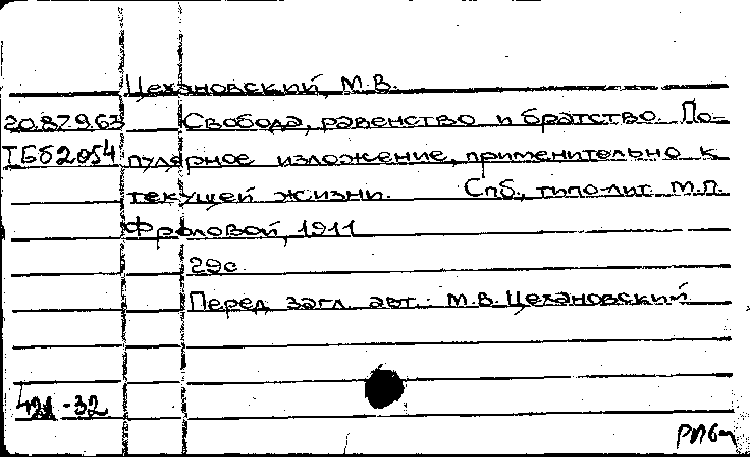 Цехановский, М.В.
20.87.9.63 Свобода, равенство и братство. По-
ТБ62054 пулярное изложение, применительно к
текущей жизни. Спб., типо-лит. М.П.
Фроловой, 1911
29с.
Перед загл. авт.: М.В. Цехановский
421-32